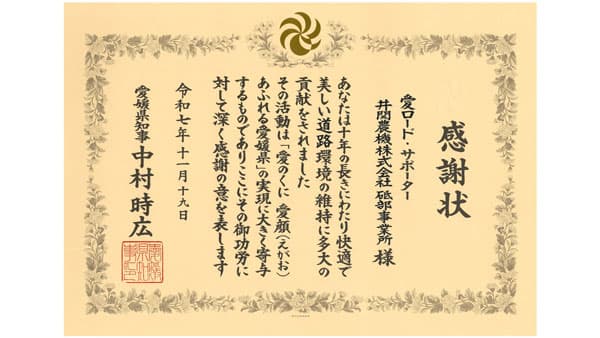 感謝状
愛ロード・サポーター
井関農機株式会社 砥部事業所 様
あなたは十年の長きにわたり快適で
美しい道路環境の維持に多大の
貢献をされました
その活動は「愛のくに 愛顔(えがお)
あふれる愛媛県」の実現に大きく寄与
するものでありここにその御功労に
対して深く感謝の意を表します
令和七年十一月十九日
愛媛県知事 中村時広